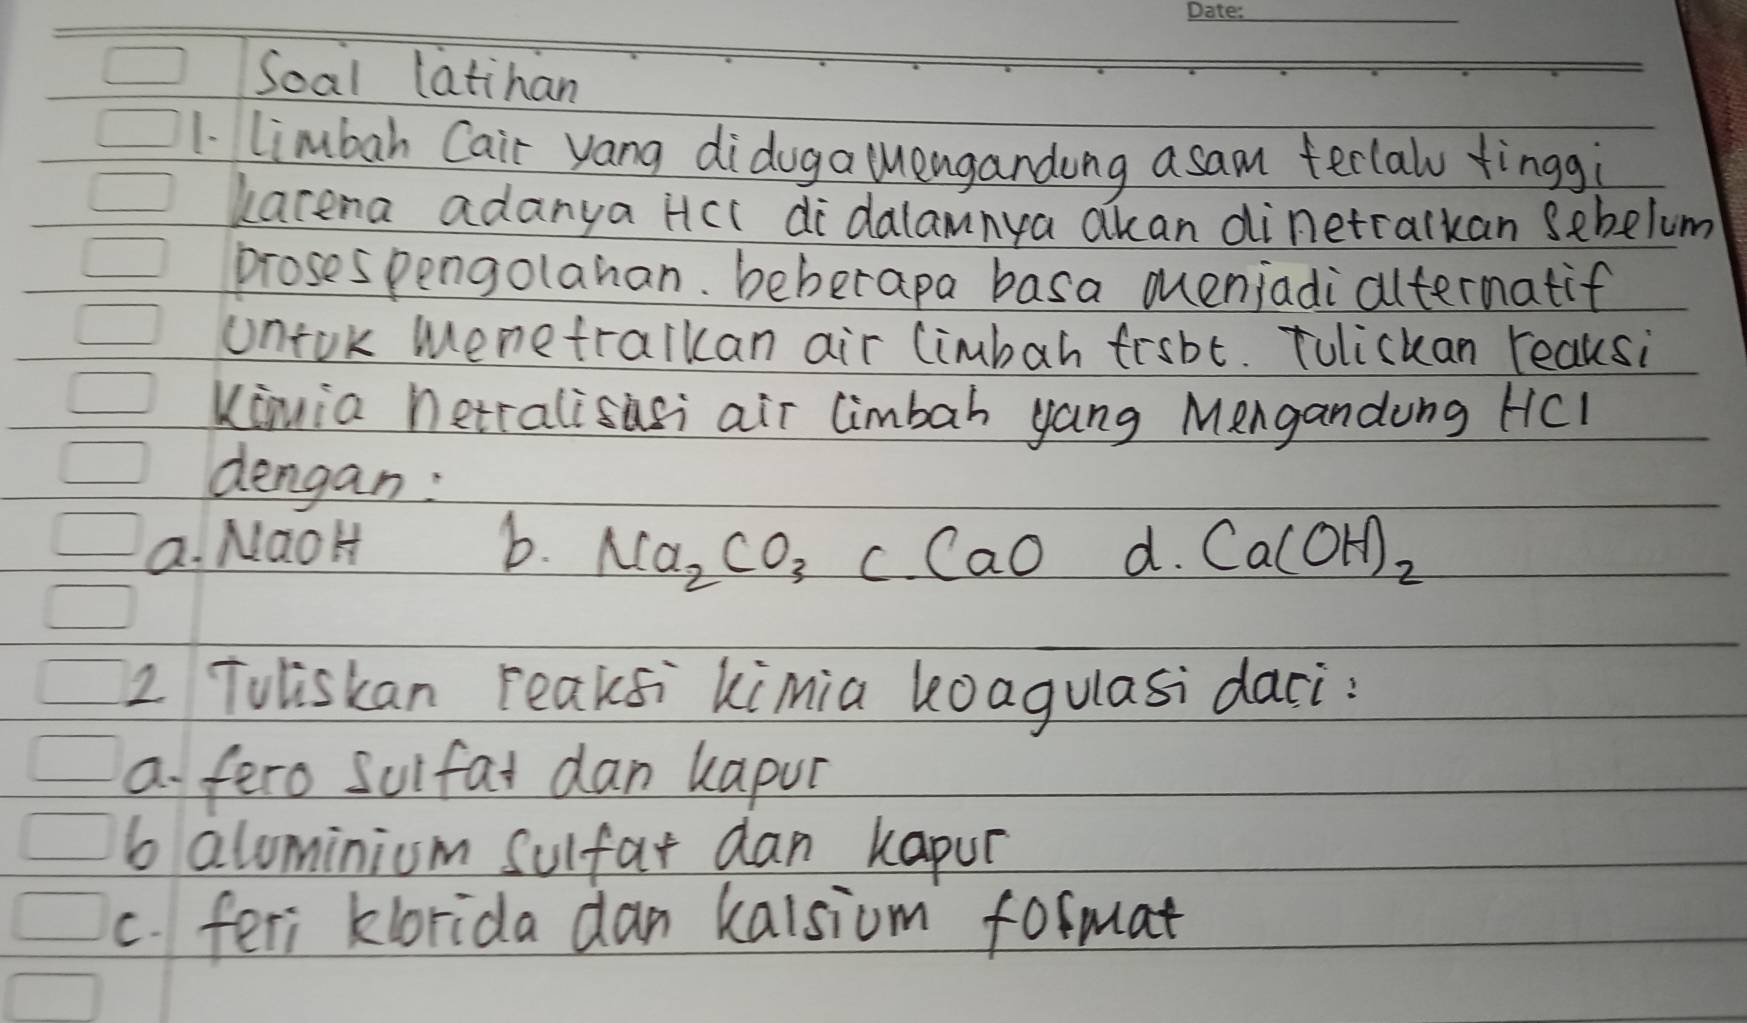 Date:
Soal latihan
1. limbah Cair yang diduga mengandung asam terlalu tinggi
karena adanya HCl di dalamnya akan dinetralkan sebelum
proses pengolahan. beberapa basa menjadi alternatif
untuk menetralkan air limbah trsbt. Tuliskan reaksi
kimia netralisasi air limbah yang Mengandung HCl
dengan:
a. NaOH b. Na₂CO₃ c. CaO d. Ca(OH)₂
2 Tuliskan reaksi kimia koagulasi dari:
a. fero sulfat dan kapur
b aluminium sulfat dan kapur
c. feri klorida dan kalsium format